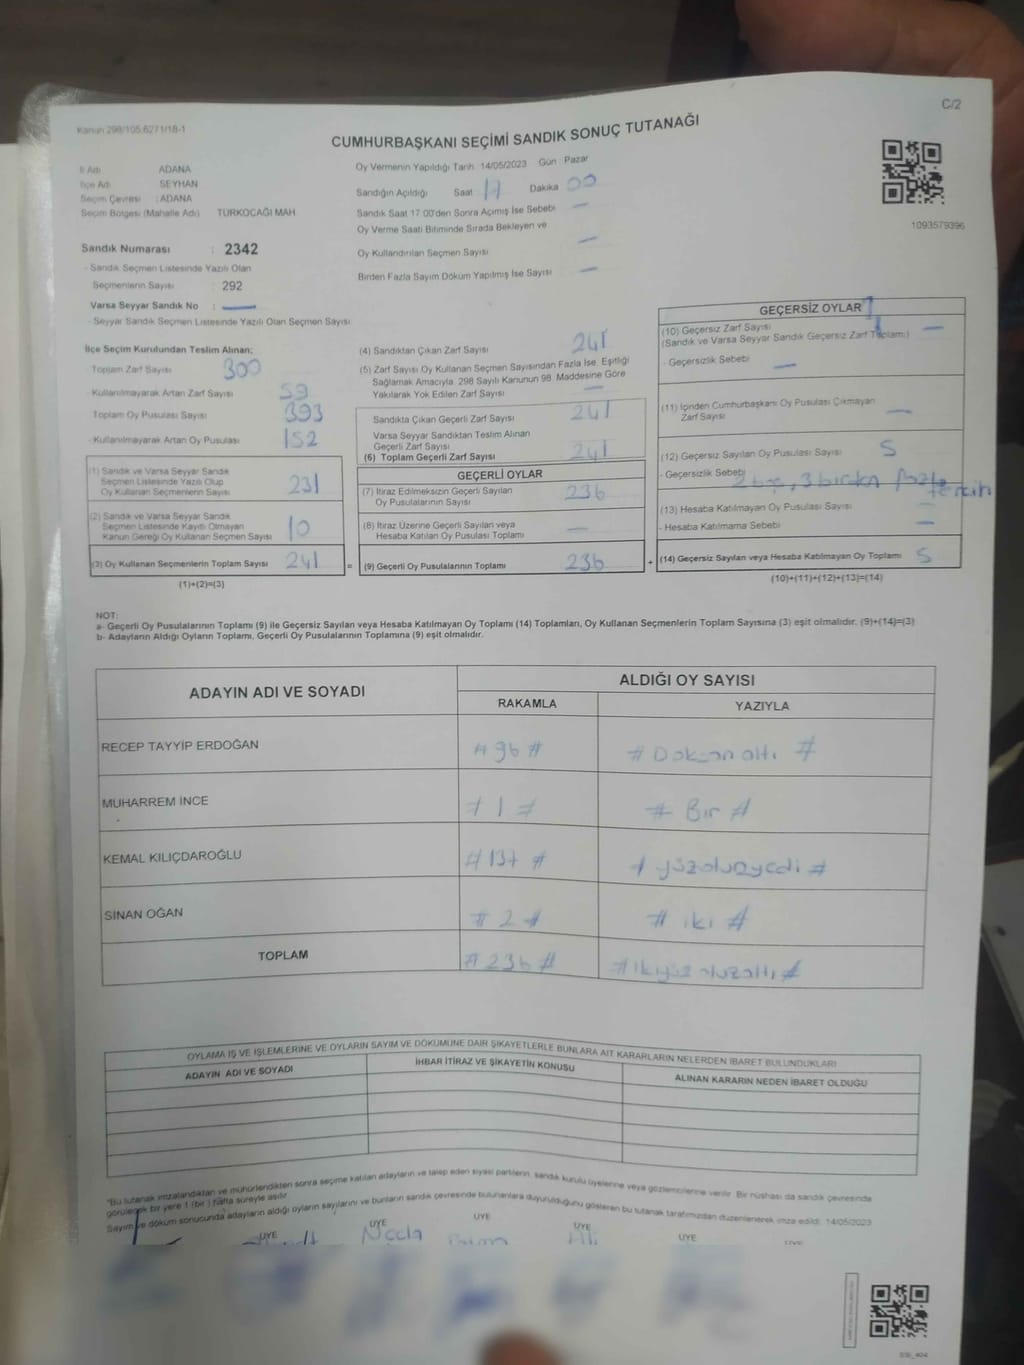 C/2
Kanun 298/105,6271/18-1
CUMHURBAŞKANI SEÇİMİ SANDIK SONUÇ TUTANAĞI
İl Adı ADANA
İlçe Adı SEYHAN
Seçim Çevresi : ADANA
Seçim Bölgesi (Mahalle Adı) TÜRKOCAĞI MAH.
Sandık Numarası : 2342
- Sandık Seçmen Listesinde Yazılı Olan
Seçmenlerin Sayısı : 292
Varsa Seyyar Sandık No : —
- Seyyar Sandık Seçmen Listesinde Yazılı Olan Seçmen Sayısı
Oy Vermenin Yapıldığı Tarih 14/05/2023 Gün Pazar
Sandığın Açıldığı Saat 17 Dakika 00
Sandık Saat 17.00'den Sonra Açımış İse Sebebi —
Oy Verme Saati Bitiminde Sırada Bekleyen ve
Oy Kullandırılan Seçmen Sayısı —
Birden Fazla Sayım Döküm Yapılmış İse Sayısı —
1093579396
İlçe Seçim Kurulundan Teslim Alınan:
- Toplam Zarf Sayısı 300
- Kullanılmayarak Artan Zarf Sayısı 59
Toplam Oy Pusulası Sayısı 393
- Kullanılmayarak Artan Oy Pusulası 152
(1) Sandık ve Varsa Seyyar Sandık
Seçmen Listesinde Yazılı Olup
Oy Kullanan Seçmenlerin Sayısı 231
(2) Sandık ve Varsa Seyyar Sandık
Seçmen Listesinde Kayıtlı Olmayan
Kanun Gereği Oy Kullanan Seçmen Sayısı 10
(3) Oy Kullanan Seçmenlerin Toplam Sayısı 241 =
(1)+(2)=(3)
(4) Sandıktan Çıkan Zarf Sayısı 241
(5) Zarf Sayısı Oy Kullanan Seçmen Sayısından Fazla İse, Eşitliği
Sağlamak Amacıyla, 298 Sayılı Kanunun 98. Maddesine Göre
Yakılarak Yok Edilen Zarf Sayısı —
Sandıkta Çıkan Geçerli Zarf Sayısı 241
Varsa Seyyar Sandıktan Teslim Alınan
Geçerli Zarf Sayısı
(6) Toplam Geçerli Zarf Sayısı 241
GEÇERLİ OYLAR
(7) İtiraz Edilmeksizin Geçerli Sayılan
Oy Pusulalarının Sayısı 236
(8) İtiraz Üzerine Geçerli Sayılan veya
Hesaba Katılan Oy Pusulası Toplamı —
(9) Geçerli Oy Pusulalarının Toplamı 236 +
GEÇERSİZ OYLAR
(10) Geçersiz Zarf Sayısı —
(Sandık ve Varsa Seyyar Sandık Geçersiz Zarf Toplamı)
- Geçersizlik Sebebi —
(11) İçinden Cumhurbaşkanı Oy Pusulası Çıkmayan
Zarf Sayısı —
(12) Geçersiz Sayılan Oy Pusulası Sayısı 5
- Geçersizlik Sebebi 2 boş, 3 birden fazla
tercih
(13) Hesaba Katılmayan Oy Pusulası Sayısı —
- Hesaba Katılmama Sebebi —
(14) Geçersiz Sayılan veya Hesaba Katılmayan Oy Toplamı 5
(10)+(11)+(12)+(13)=(14)
NOT:
a- Geçerli Oy Pusulalarının Toplamı (9) ile Geçersiz Sayılan veya Hesaba Katılmayan Oy Toplamı (14) Toplamları, Oy Kullanan Seçmenlerin Toplam Sayısına (3) eşit olmalıdır. (9)+(14)=(3)
b- Adayların Aldığı Oyların Toplamı, Geçerli Oy Pusulalarının Toplamına (9) eşit olmalıdır.
ADAYIN ADI VE SOYADI ALDIĞI OY SAYISI
RAKAMLA YAZIYLA
RECEP TAYYİP ERDOĞAN # 96 # # Doksan altı #
MUHARREM İNCE # 1 # # Bir #
KEMAL KILIÇDAROĞLU # 137 # # yüzotuzyedi #
SİNAN OĞAN # 2 # # iki #
TOPLAM # 236 # # ikiyüzotuzaltı #
OYLAMA İŞ VE İŞLEMLERİNE VE OYLARIN SAYIM VE DÖKÜMÜNE DAİR ŞİKAYETLERLE BUNLARA AİT KARARLARIN NELERDEN İBARET BULUNDUKLARI
ADAYIN ADI VE SOYADI İHBAR İTİRAZ VE ŞİKAYETİN KONUSU ALINAN KARARIN NEDEN İBARET OLDUĞU
*Bu tutanak imzalandıktan ve mühürlendikten sonra seçime katılan adayların ve talep eden siyasi partilerin, sandık kurulu üyelerine veya gözlemcilerine verilir. Bir nüshası da sandık çevresinde
görülecek bir yere 1 (bir) hafta süreyle asılır.
Sayım ve döküm sonucunda adayların aldığı oyların sayılarını ve bunların sandık çevresinde bulunanlara duyurulduğunu gösteren bu tutanak tarafımızdan düzenlenerek imza edildi. 14/05/2023
ÜYE ÜYE ÜYE ÜYE ÜYE
Necla Ali